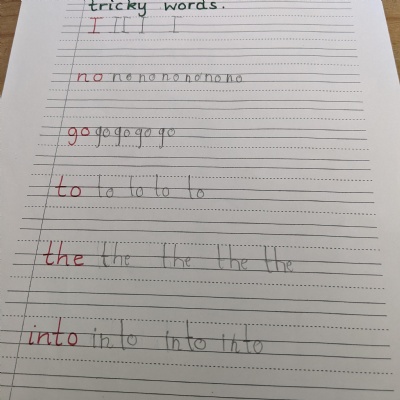 tricky words.
I I I I I
no no no no no no no
go go go go go
to to to to to
the the the the the
into into into into